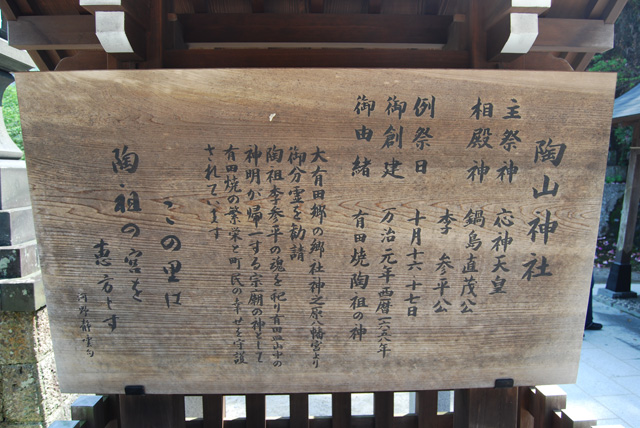 陶山神社
主祭神 応神天皇
相殿神 鍋島直茂公
李 参平公
例祭日 十月十六 十七日
御創建 万治元年西暦一六五八年
御由緒 有田焼陶祖の神
大有田郷の郷社神之原八幡宮より
御分霊を勧請
陶祖李参平の魂を祀り有田皿山中の
神明が帰一する宗廟の神として
有田焼の繁栄と町民の幸せを守護
されています
この里は
陶祖の宮を
恵方とす